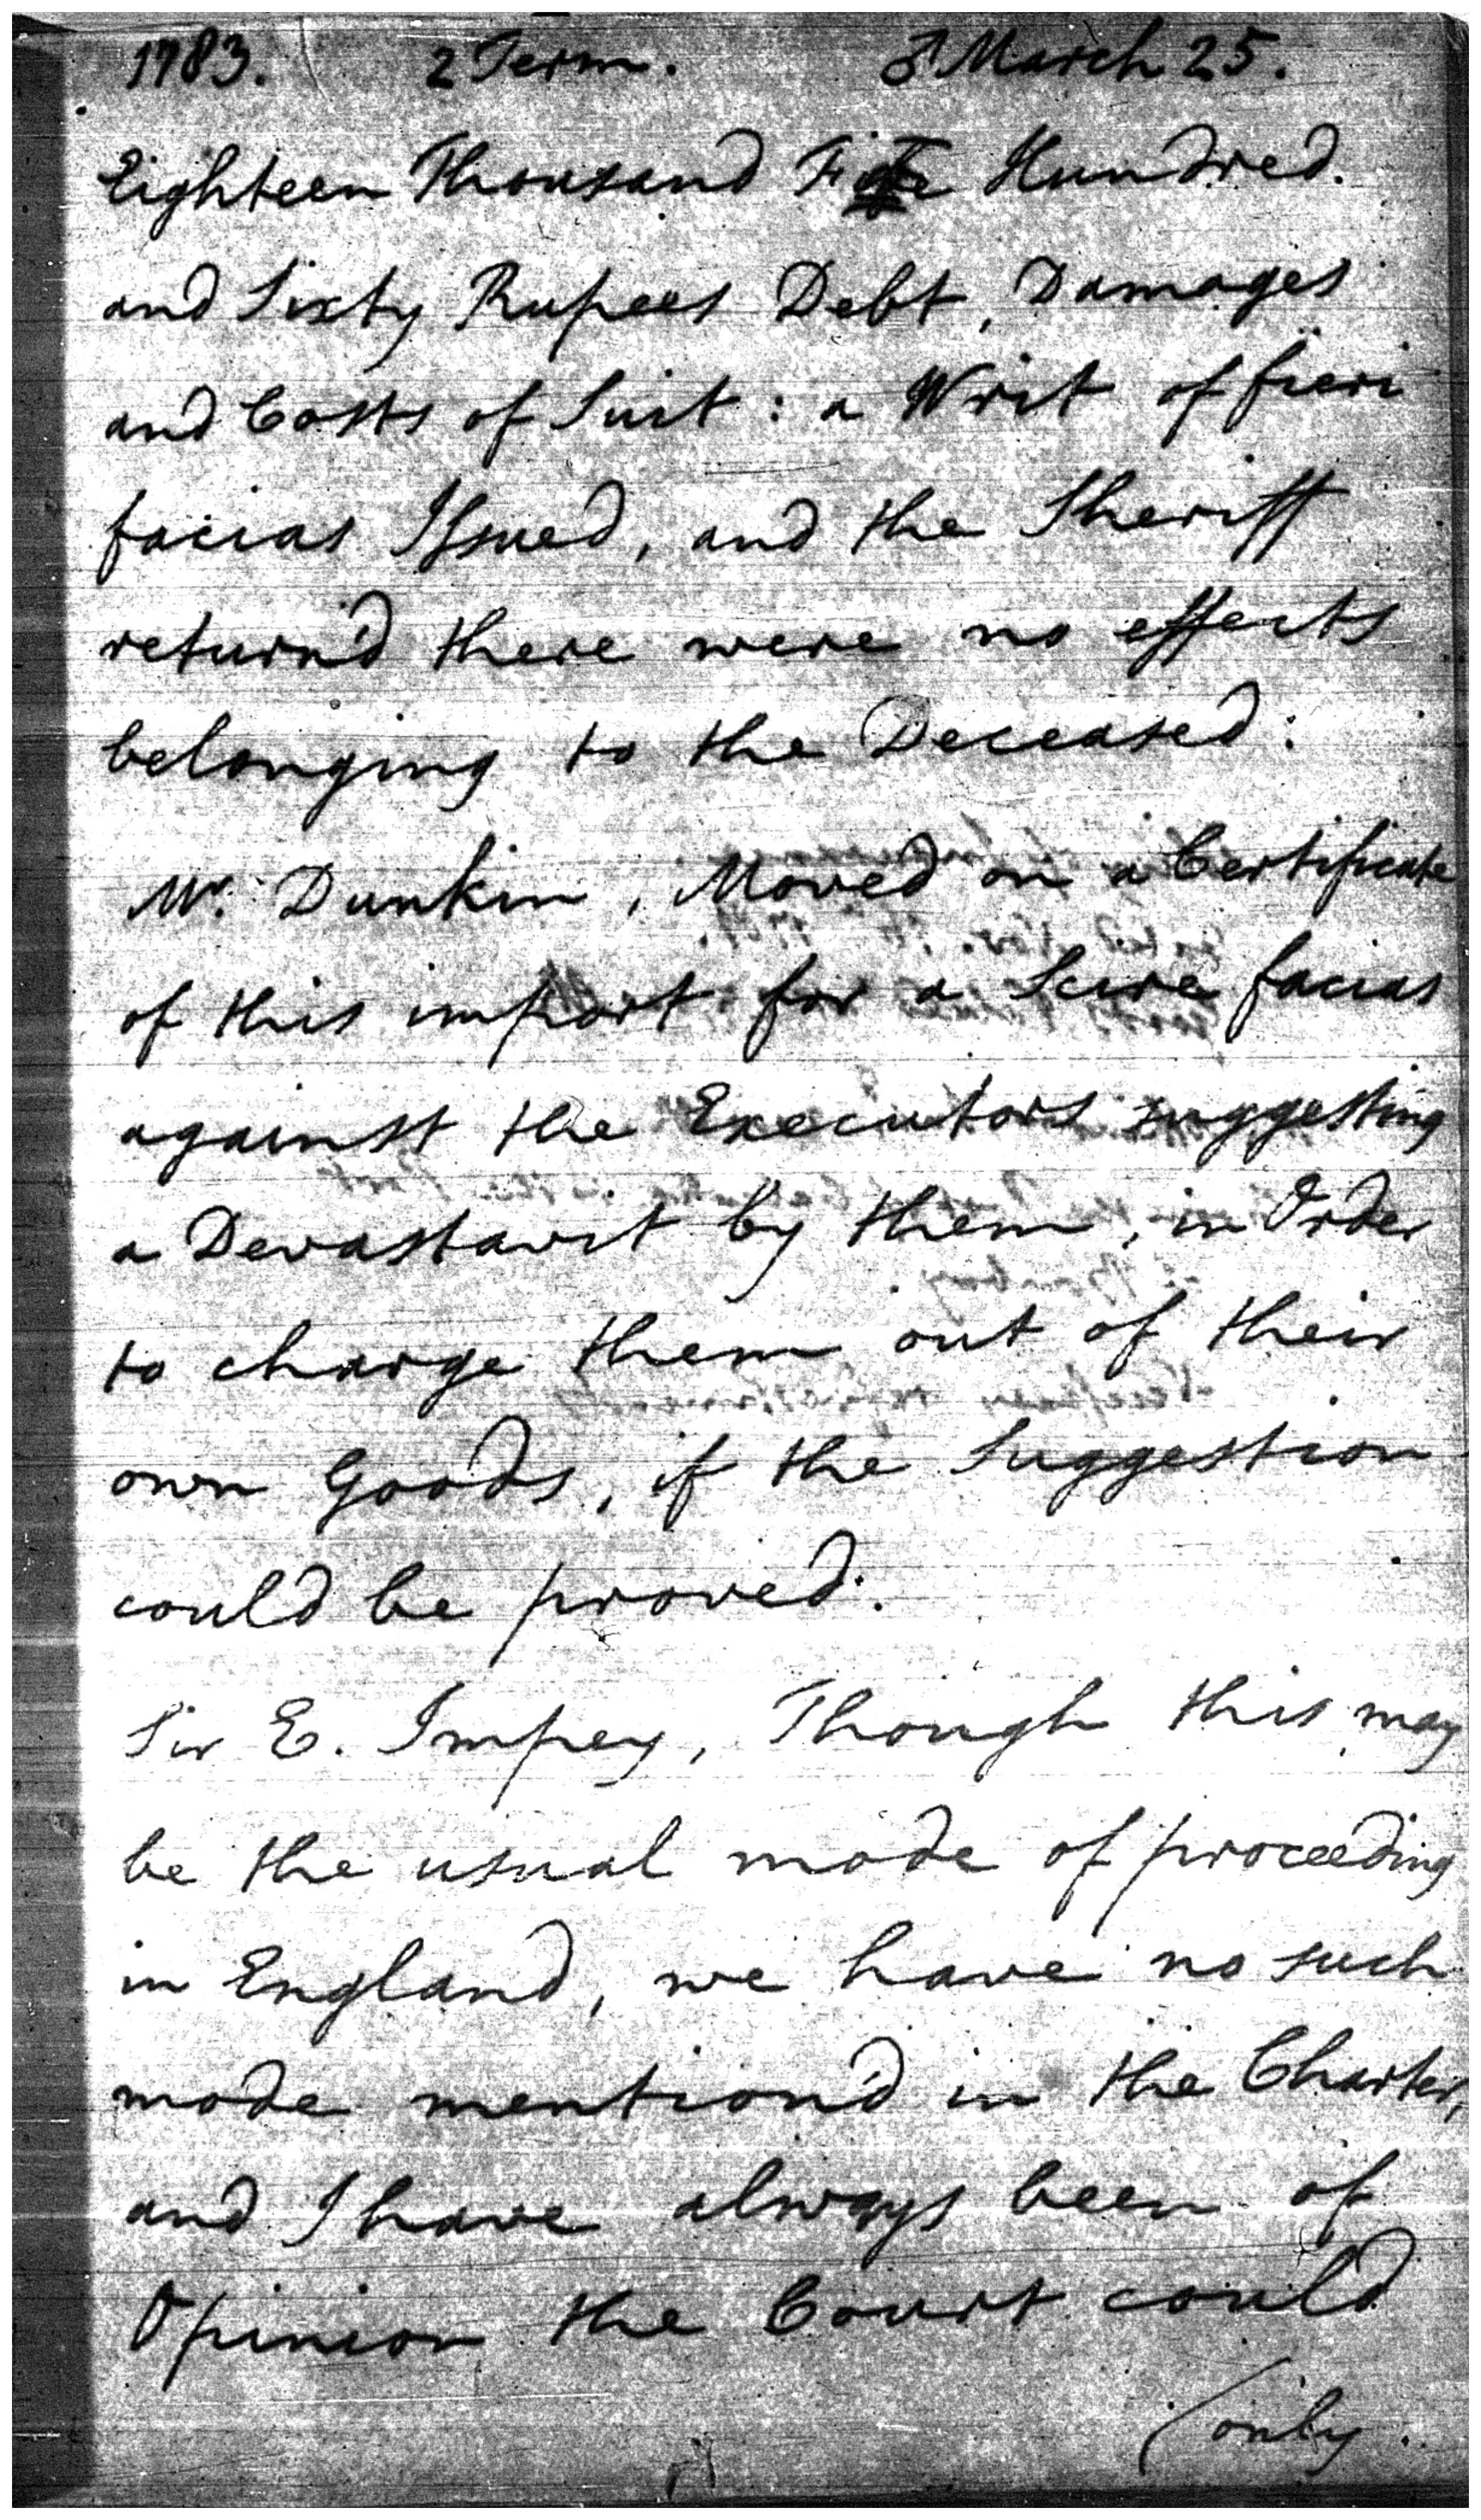 1783. 2 Term. ♂ March 25.
Eighteen Thousand Five Hundred
and Sixty Rupees Debt, Damages
and Costs of Suit: a Writ of fieri
facias Issued, and the Sheriff
return'd there were no effects
belonging to the Deceased:
Mr. Dunkin, Moved on a Certificate
of this import for a Scire facias
against the Executors suggesting
a Devastavit by them, in Order
to charge them out of their
own Goods, if the Suggestion
could be proved.
Sir E. Impey, Though this may
be the usual mode of proceeding
in England, we have no such
mode mention'd in the Charter,
and I have always been of
Opinion the Court could
(only